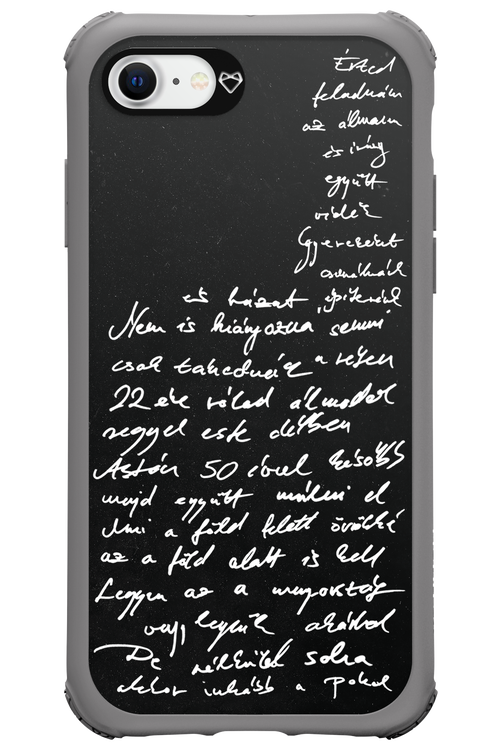 Érted
feladnám
az álmom
és így
együtt
veled
Gyerekeket
csinálnék
és házat építenék
Nem is hiányozna semmi
csak takarodnék a
22 éve rólad álmodok
reggel este délben
Aztán 50 évvel később
majd együtt múlni el
Ami a föld felett örökké
az a föld alatt is kell
Legyen az a mennyország
vagy legyünk akárhol
De nélküled soha
akkor inkább a Pokol